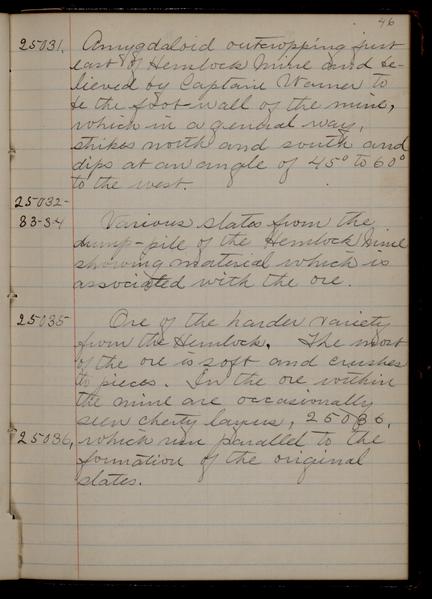 46
25031. Amygdaloid outcropping just
east of Hemlock Mine and be-
lieved by Captain Warner to
be the foot-wall of the mine,
which in a general way,
strikes north and south and
dips at an angle of 45° to 60°
to the west.
25032-
33-34 Various slates from the
dump-pile of the Hemlock Mine
showing material which is
associated with the ore.
25035 Ore of the harder variety
from the Hemlock. The most
of the ore is soft and crushes
to pieces. In the ore within
the mine are occasionally
seen cherty layers, 25036,
25036, which run parallel to the
formation of the original
slates.